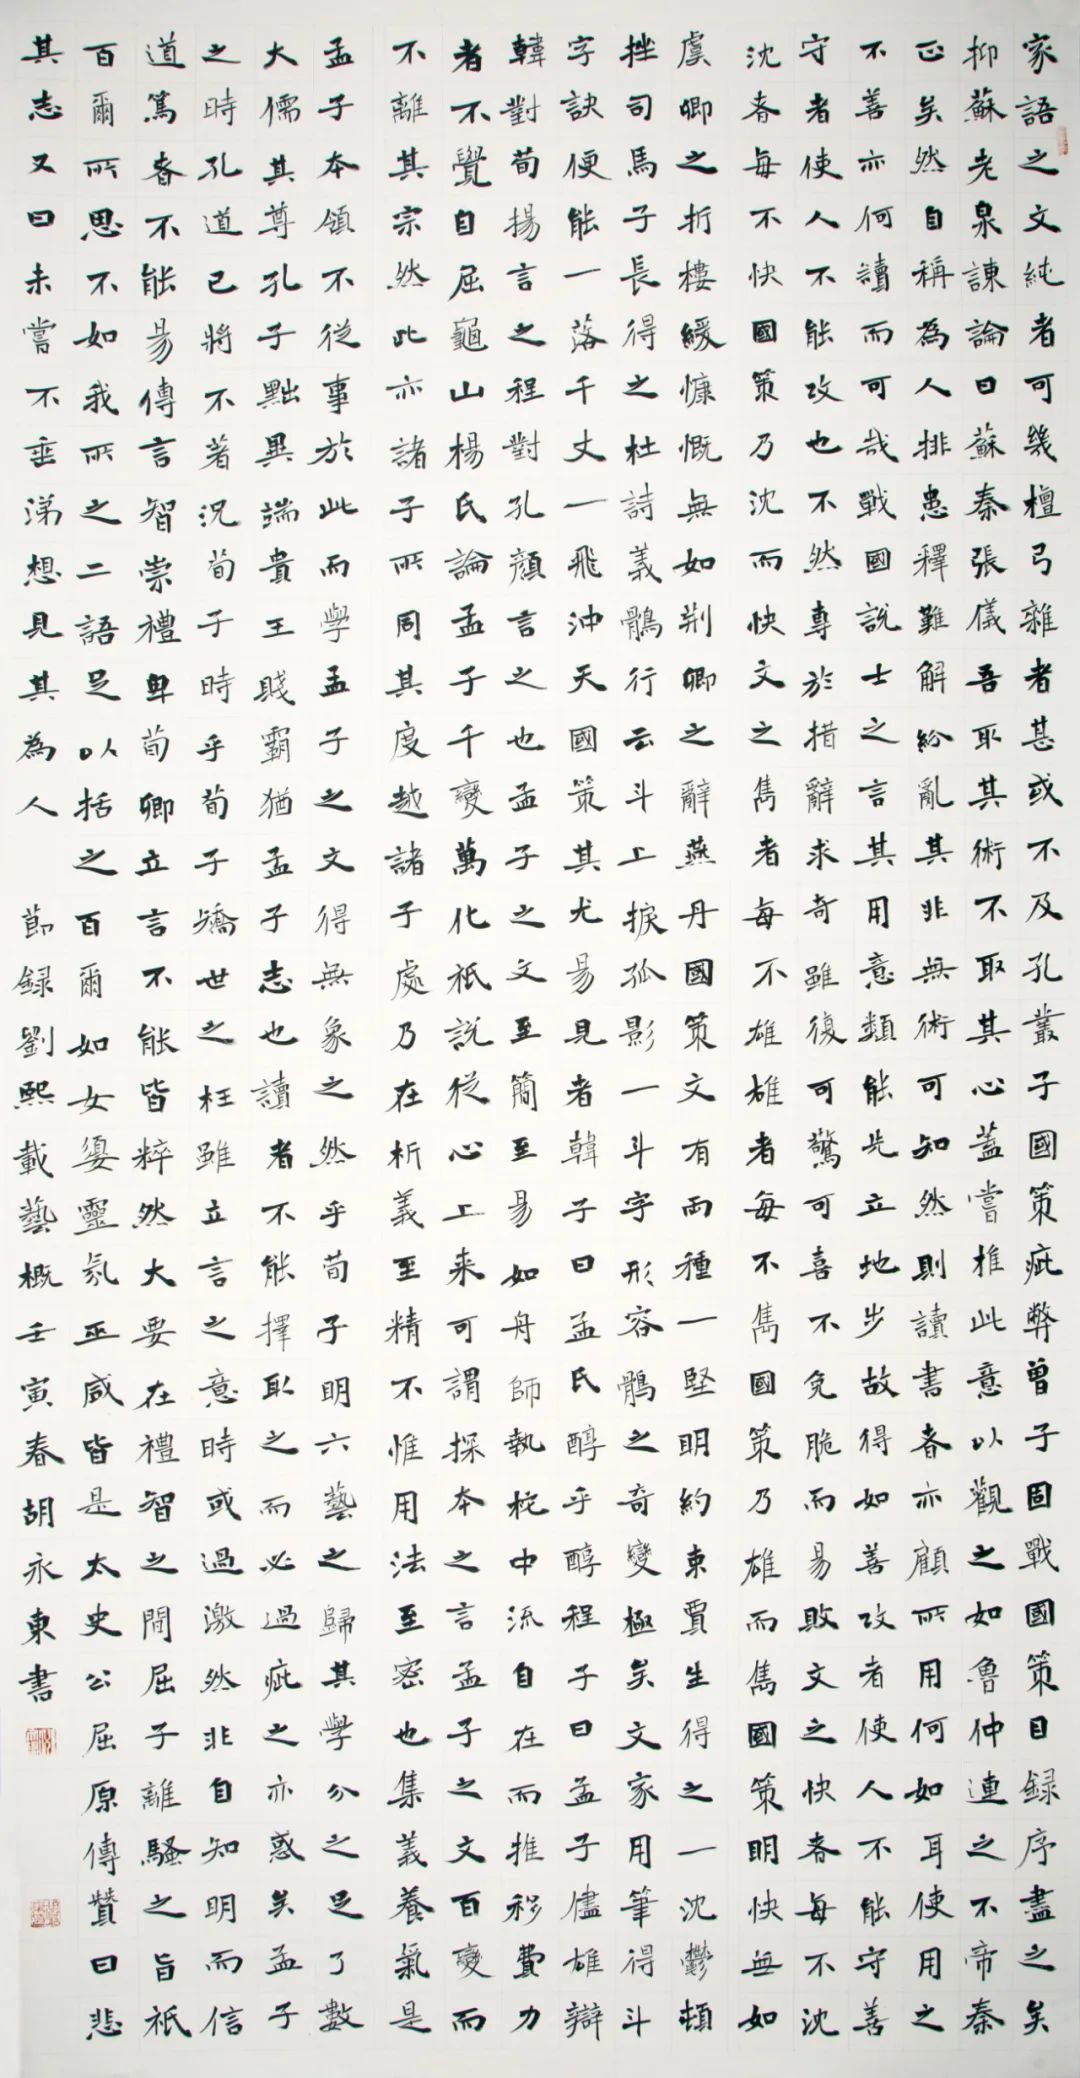 家語之文純者可幾檀弓雜者甚或不及孔叢子國策疵弊曾子固戰國策目録序盡之矣
抑蘇老泉諫論曰蘇秦張儀吾取其術不取其心蓋嘗推此意以觀之如魯仲連之不帝秦
正矣然自稱為人排患釋難解紛亂其非無術可知然則讀書者亦顧所用何如耳使用之
不善亦何讀而可哉戰國說士之言其用意類能先立地步故得如善攻者使人不能守善
守者使人不能攻也不然專於措辭求奇雖復可驚可喜不免脆而易敗文之快者每不沈
沈者每不快國策乃沈而快文之雋者每不雄雄者每不雋國策乃雄而雋國策明快無如
虞卿之折樓緩慷慨無如荆卿之辭燕丹國策文有兩種一堅明約束賈生得之一沈鬱頓
挫司馬子長得之杜詩義鶻行云斗上捩孤影一斗字形容鶻之奇變極矣文家用筆得斗
字訣便能一落千丈一飛沖天國策其尤易見者韓子曰孟氏醇乎醇程子曰孟子儘雄辯
韓對荀揚言之程對孔顏言之也孟子之文至簡至易如舟師執柁中流自在而推移費力
者不覺自屈龜山楊氏論孟子千變萬化祇說從心上来可謂探本之言孟子之文百變而
不離其宗然此亦諸子所同其度越諸子處乃在析義至精不惟用法至密也集義養氣是
孟子本領不從事於此而學孟子之文得無象之然乎荀子明六藝之歸其學分之足了數
大儒其尊孔子黜異端貴王賤霸猶孟子志也讀者不能擇取之而必過疵之亦惑矣孟子
之時孔道已將不著況荀子時乎荀子矯世之枉雖立言之意時或過激然非自知明而信
道篤者不能易傳言智崇禮卑荀卿立言不能皆粹然大要在禮智之間屈子離騷之旨祇
百爾所思不如我所之二語足以括之百爾如女嬃靈氛巫咸皆是太史公屈原傳贊曰悲
其志又曰未嘗不垂涕想見其為人 節録劉熙載藝概壬寅春胡永東書